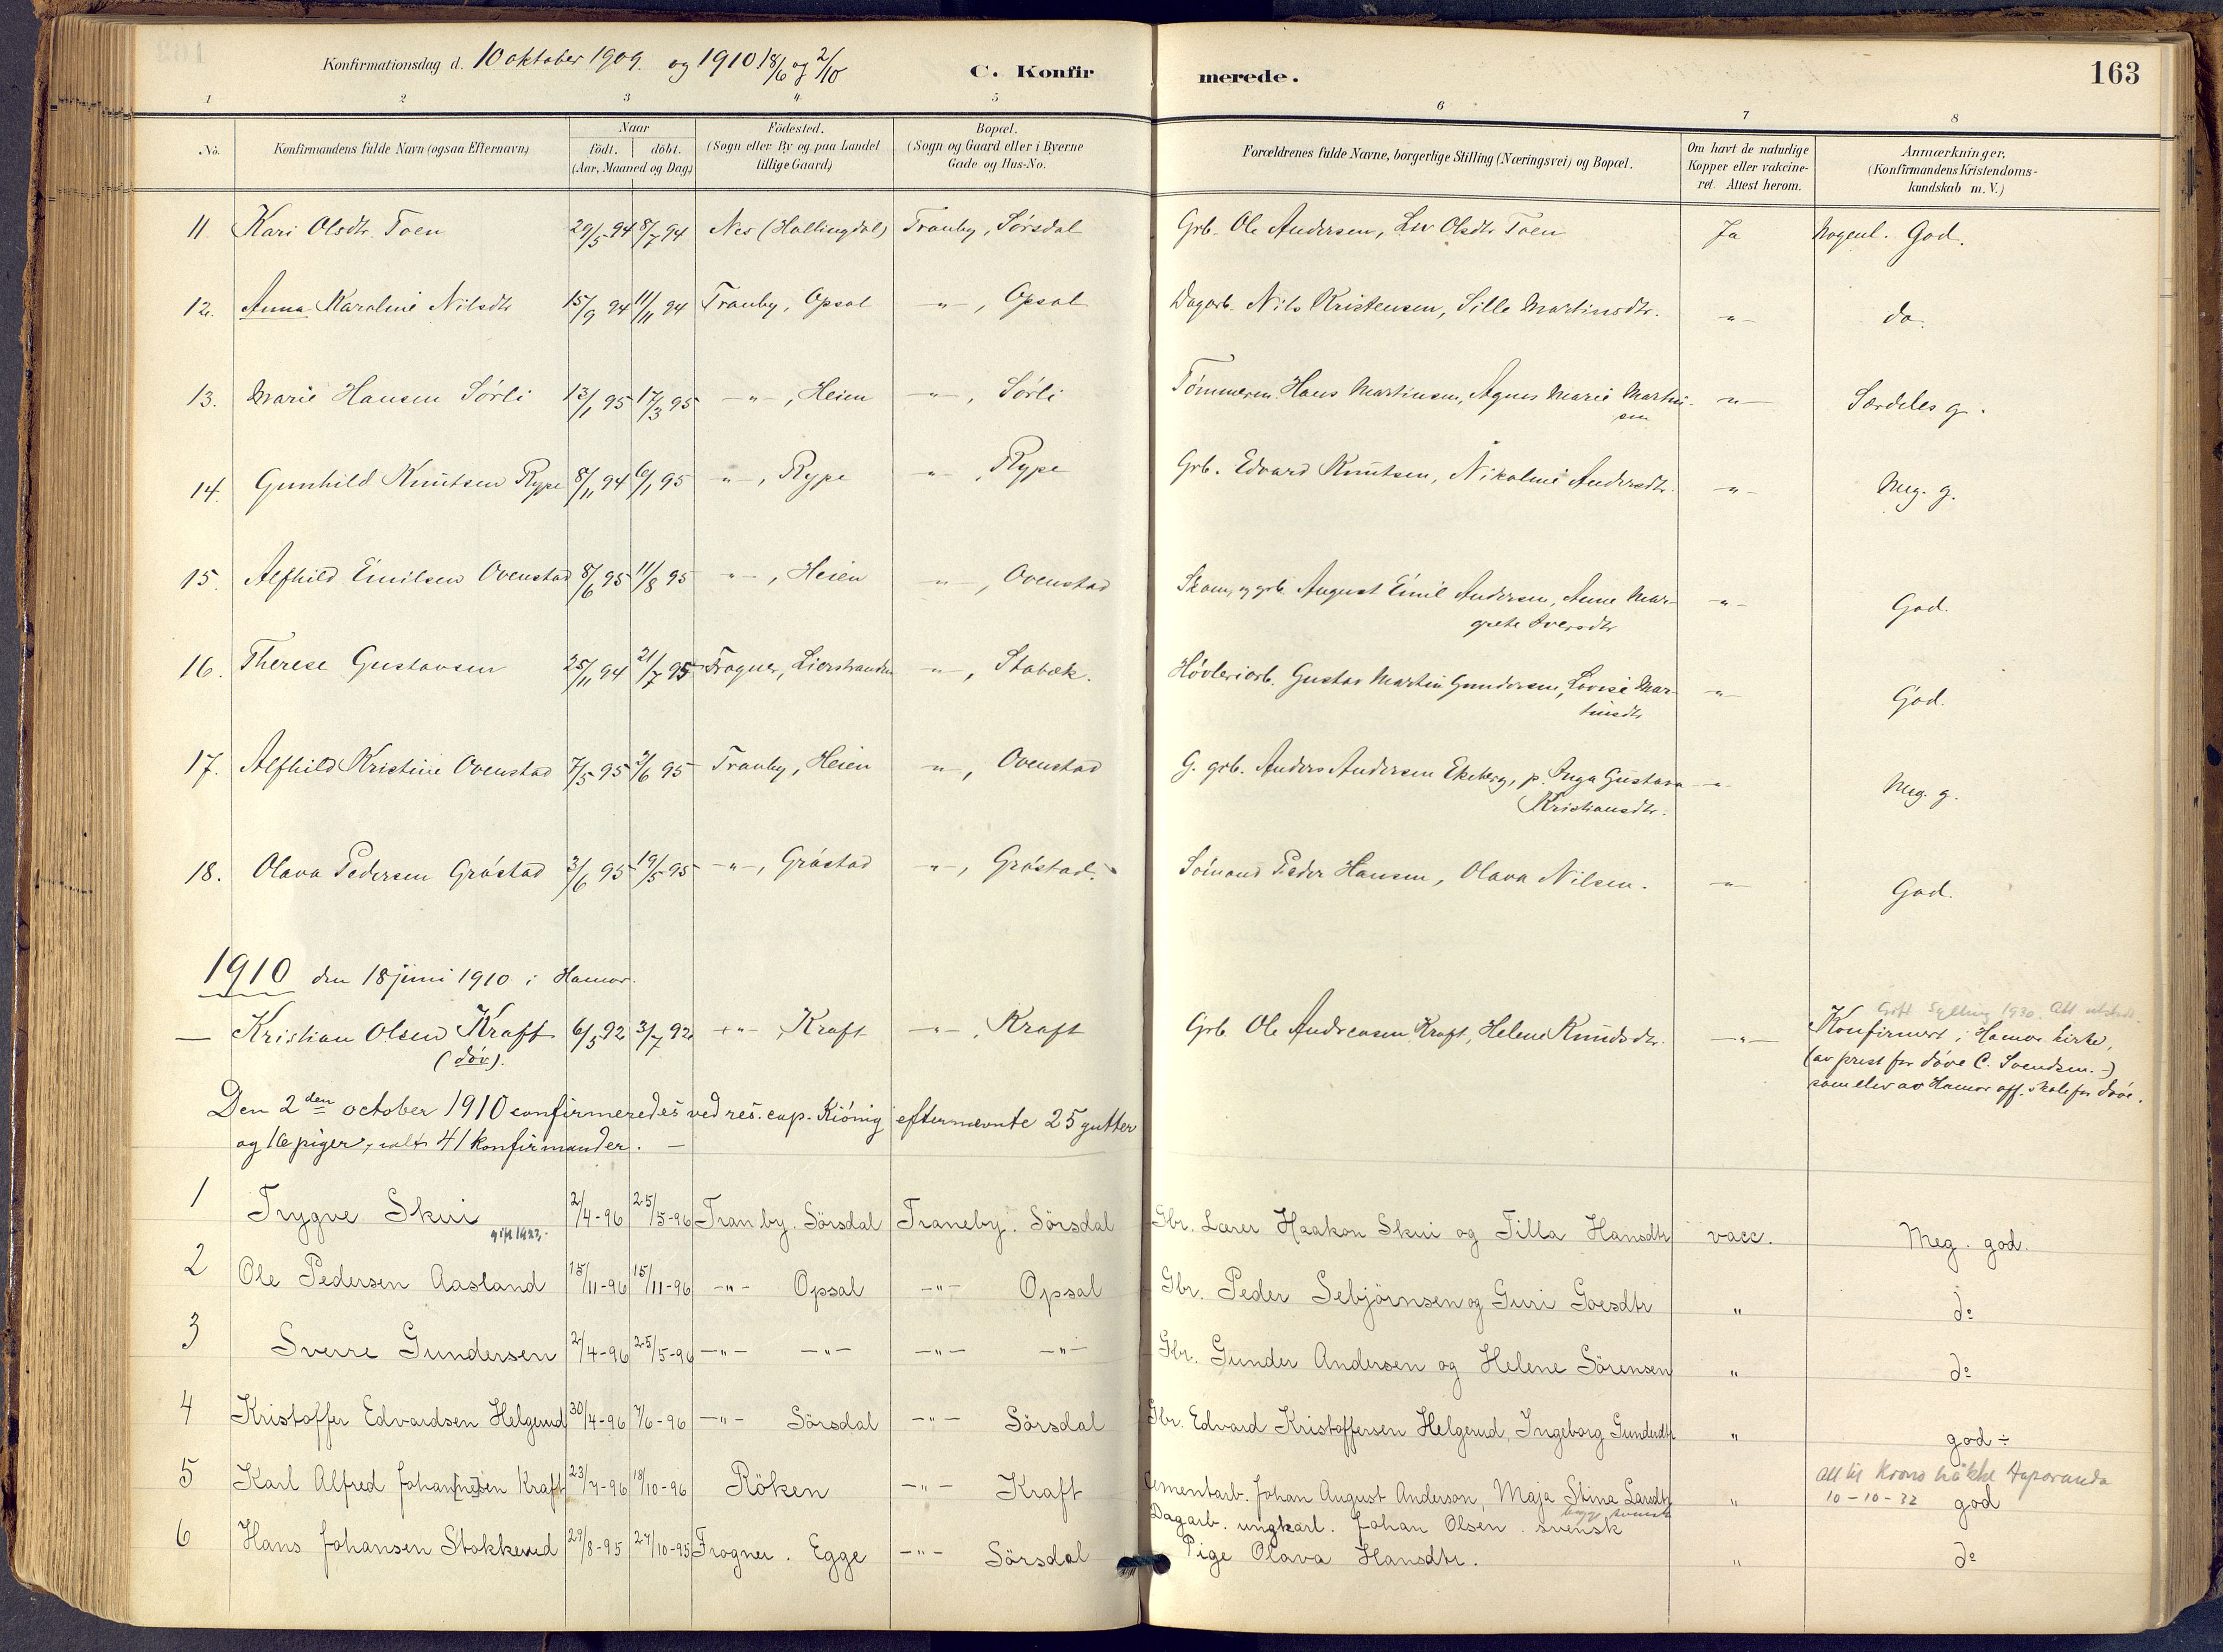 Konfirmationsdag d. 10 oktober 1909. og 1910 18/6 og 2/10
C. Konfirmerede.
163
1 2 3 4 5 6 7 8
No. Konfirmandens fulde Navn (ogsaa Efternavn) Naar födt. döbt. (Aar, Maaned og Dag) Födested. (Sogn eller By og paa Landet tillige Gaard) Bopæl. (Sogn og Gaard eller i Byerne Gade og Hus-No. Forældrenes fulde Navne, borgerlige Stilling (Næringsvei) og Bopæl. Om havt de naturlige Kopper eller vakcineret. Attest herom. Anmærkninger, (Konfirmandens Kristendomskundskab m. V.)
11 Kari Olsdtr. Toen 29/5 94 8/7 94 Nes (Hallingdal) Tranby, Sørsdal Grb. Ole Andersen, Liv Olsdtr Toen Ja Nogenl. God.
12. Anna Karoline Nilsdtr 15/9 94 11/11 94 Tranby, Opsal -"-, Opsal Dagarb. Nils Kristensen, Sille Martinsdtr. -"- do.
13. Marie Hansen Sørli 13/1 95 17/3 95 -"-, Heien -"-, Sørli Tømmerm. Hans Martinsen, Agnes Marie Martinsen -"- Særdeles g.
14. Gunhild Knutsen Rype 8/11 94 6/1 95 -"-, Rype -"-, Rype Grb. Edvard Knutsen, Nikoline Andersdtr. -"- Meg. g.
15. Alfhild Emilsen Ovenstad 8/6 95 11/8 95 -"-, Heien -"-, Ovenstad Skom. og grb. August Emil Andersen, Anne Margrete Iversdtr -"- God.
16. Therese Gustavsen 25/11 94 21/7 95 Frogner, Lierstranden -"-, Stabæk. Høvleriarb. Gustav Martin Gundersen, Lovise Martinsdtr -"- God.
17. Alfhild Kristine Ovenstad 7/5 95 3/6 95 Tranby, Heien -"-, Ovenstad G. grb. Anders Andersen Ekeberg, p. Inga Gustava Kristiansdtr. -"- Meg. g.
18. Olava Pedersen Gråstad 3/6 95 19/5 95 -"-, Gråstad -"-, Gråstad. Sömand Peder Hansen, Olava Nilsen. -"- God.
1910 den 18 juni 1910 i Hamar.
— Kristian Olsen Kraft (døv). 6/5 92 3/7 92 -"- Kraft -"-, Kraft Grb. Ole Andreasen Kraft, Helene Knudsdtr. -"- Gift Sylling 1930. Att utstedt.
Konfirmert i Hamar kirke,
(av prest for døve C. Svendsen.-)
som elev av Hamar off. skole for døve.
Den 2den october 1910 confirmeredes ved res. cap. Kiönig efternævnte 25 gutter
og 16 piger, ialt 41 konfirmander. —
1 Trygve Skui gift 1923. 2/4-96 25/5-96 Tranby. Sörsdal Traneby. Sörsdal Gbr. Lærer Haakon Skui og Tilla Hansdtr vacc. Meg. god.
2 Ole Pedersen Aasland 15/11-96 15/11-96 -"- Opsal -"- Opsal Gbr. Peder Sebjörnsen og Guri Goesdtr " do
3 Sverre Gundersen 2/4-96 25/5-96 -"- -"- -"- -"- Gbr. Gunder Andersen og Helene Sörensen " do
4 Kristoffer Edvardsen Helgerud 30/4-96 7/6-96 -"- Sörsdal -"- Sörsdal Gbr. Edvard Kristoffersen Helgerud, Ingeborg Gundersdtr " god ÷
5 Karl Alfred Johan[ne]sen Kraft 23/7-96 18/10-96 Röken -"- Kraft Cementarb. Johan August Anderson, Maja Stina Larsdtr begge svenske " att til Haparanda 10-10-32 god
6 Hans Johansen Stokkerud 29/8-95 27/10-95 Frogner. Egge -"- Sörsdal Dagarb. ungkarl. Johan Olsen. svensk
Pige Olava Hansdtr. " do